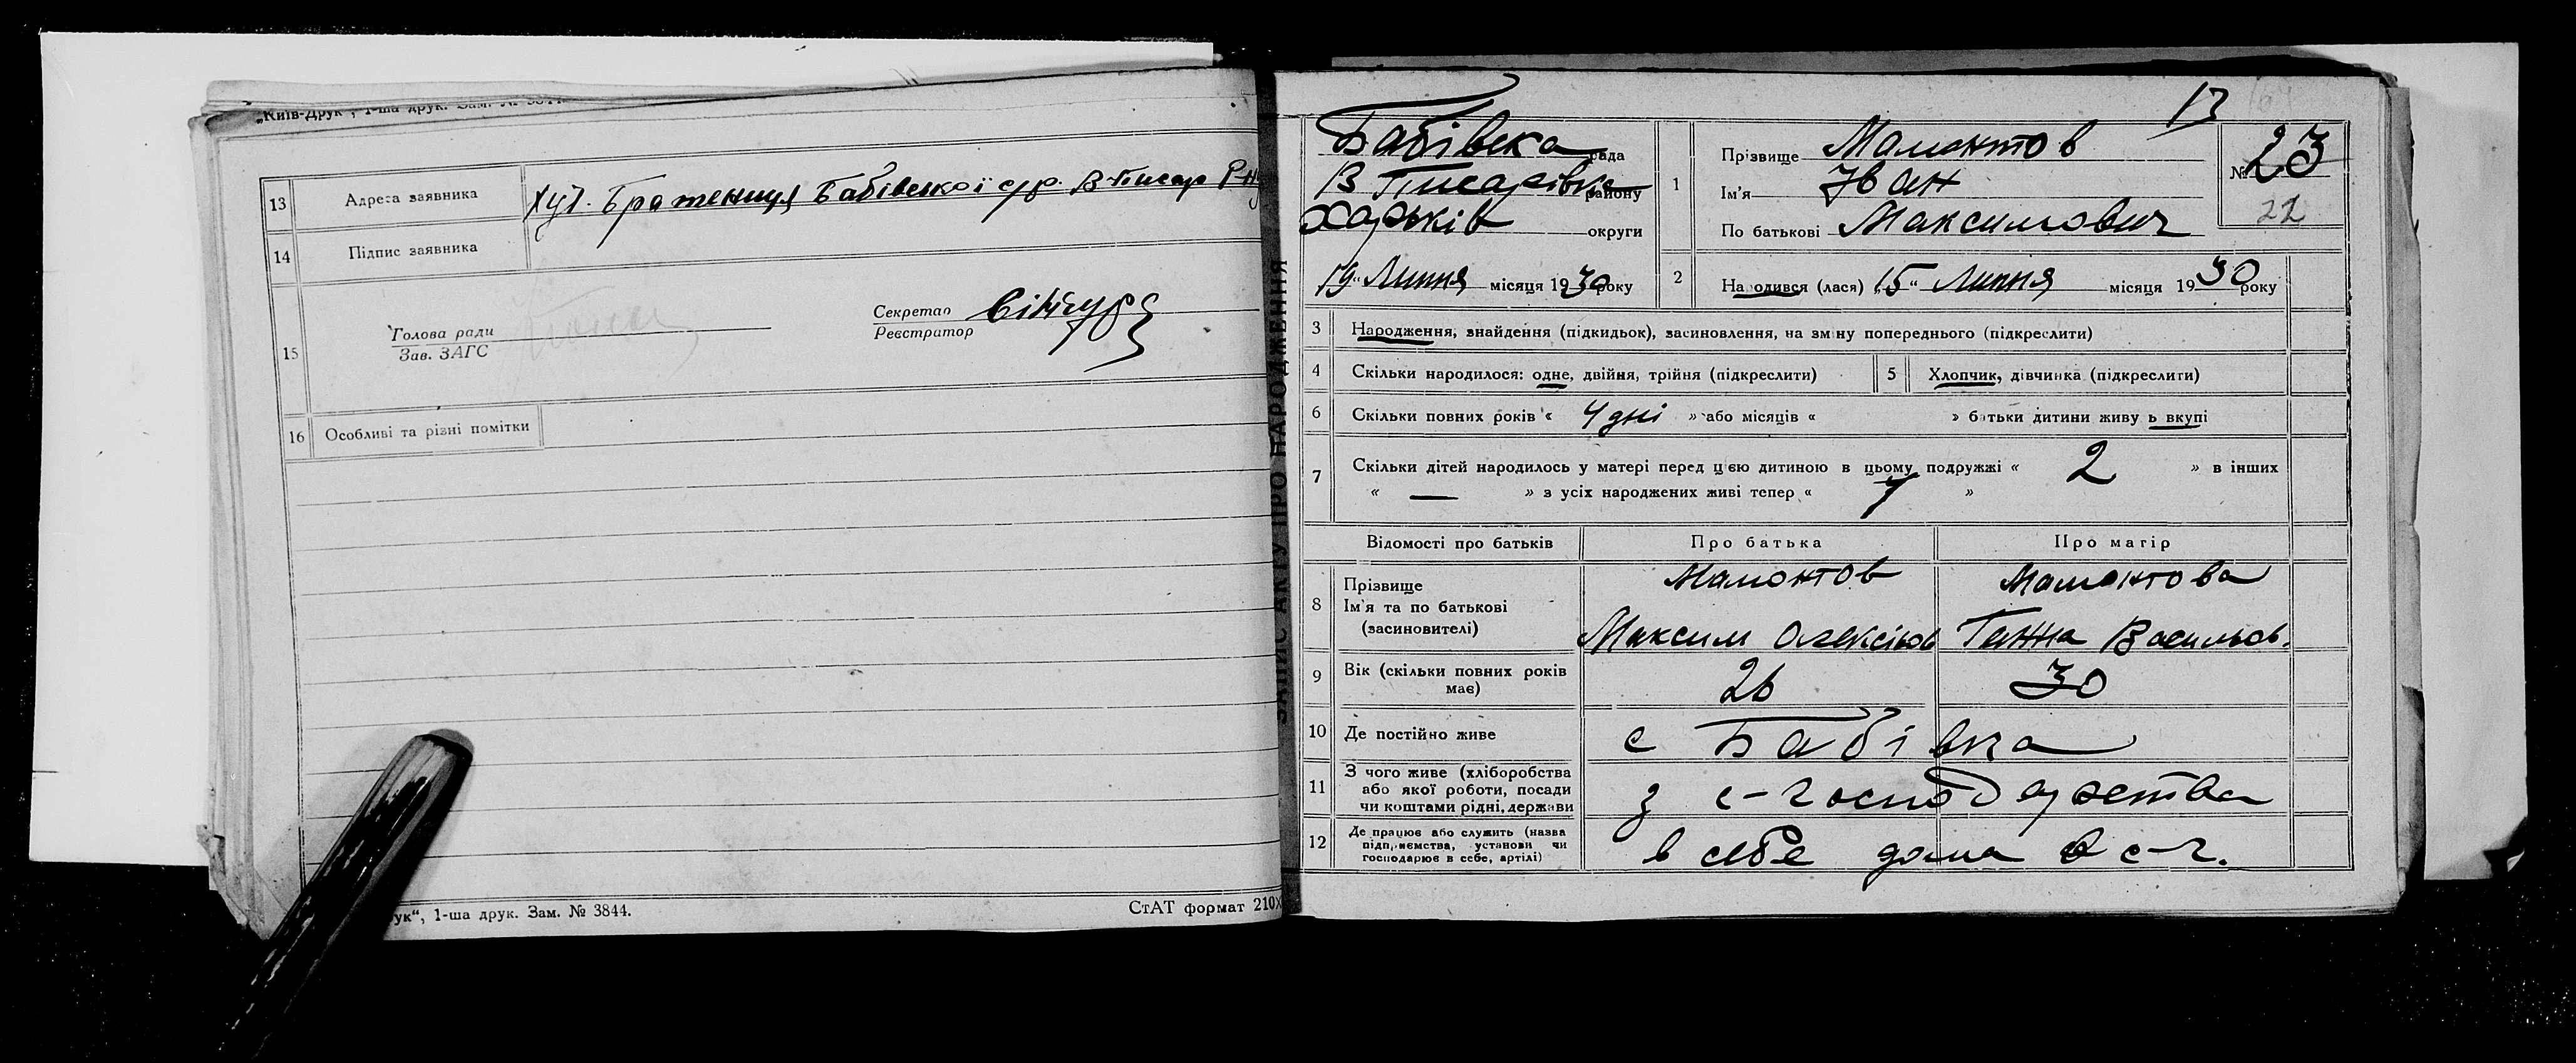 „Київ-Друк", 1-ша друк. Зам. № 3844.
13 Адреса заявника хут. Братениця Бабівської с/р. В-Писар Р-ну
14 Підпис заявника
15 Голова ради
Зав. ЗАГС
Секретар
Реєстратор
16 Особливі та різні помітки
ук", 1-ша друк. Зам. № 3844.
СтАТ формат 210х
ЗАПИС АКТУ ПРО НАРОДЖЕННЯ
13
Бабівска рада
В Писарівка району
Харьків округи
19 „ Липня місяця 1930 року
1 Прізвище Мамонтов
Ім'я Іван
По батькові Максимович
№ 23
22
2 Народився (лася) „15" Липня місяця 1930 року
3 Народження, знайдення (підкидьок), засиновлення, на зміну попереднього (підкреслити)
4 Скільки народилося: одне, двійня, трійня (підкреслити) 5 Хлопчик, дівчинка (підкреслити)
6 Скільки повних років « 4 дні » або місяців « » батьки дитини живуть вкупі
7 Скільки дітей народилось у матері перед цією дитиною в цьому подружжі « 2 » в інших
« — » з усіх народжених живі тепер « 1 »
Відомості про батьків Про батька Про матір
8 Прізвище Мамонтов Мамонтова
Ім'я та по батькові
(засиновителі) Максим Олексійов Ганна Васильов.
9 Вік (скільки повних років
має) 26 30
10 Де постійно живе с Бабівка
11 З чого живе (хліборобства
або якої роботи, посади
чи коштами рідні, держави з с-господарства
12 Де працює або служить (назва
підприємства, установи чи
господарює в себе, артілі) в себе дома в с-г.